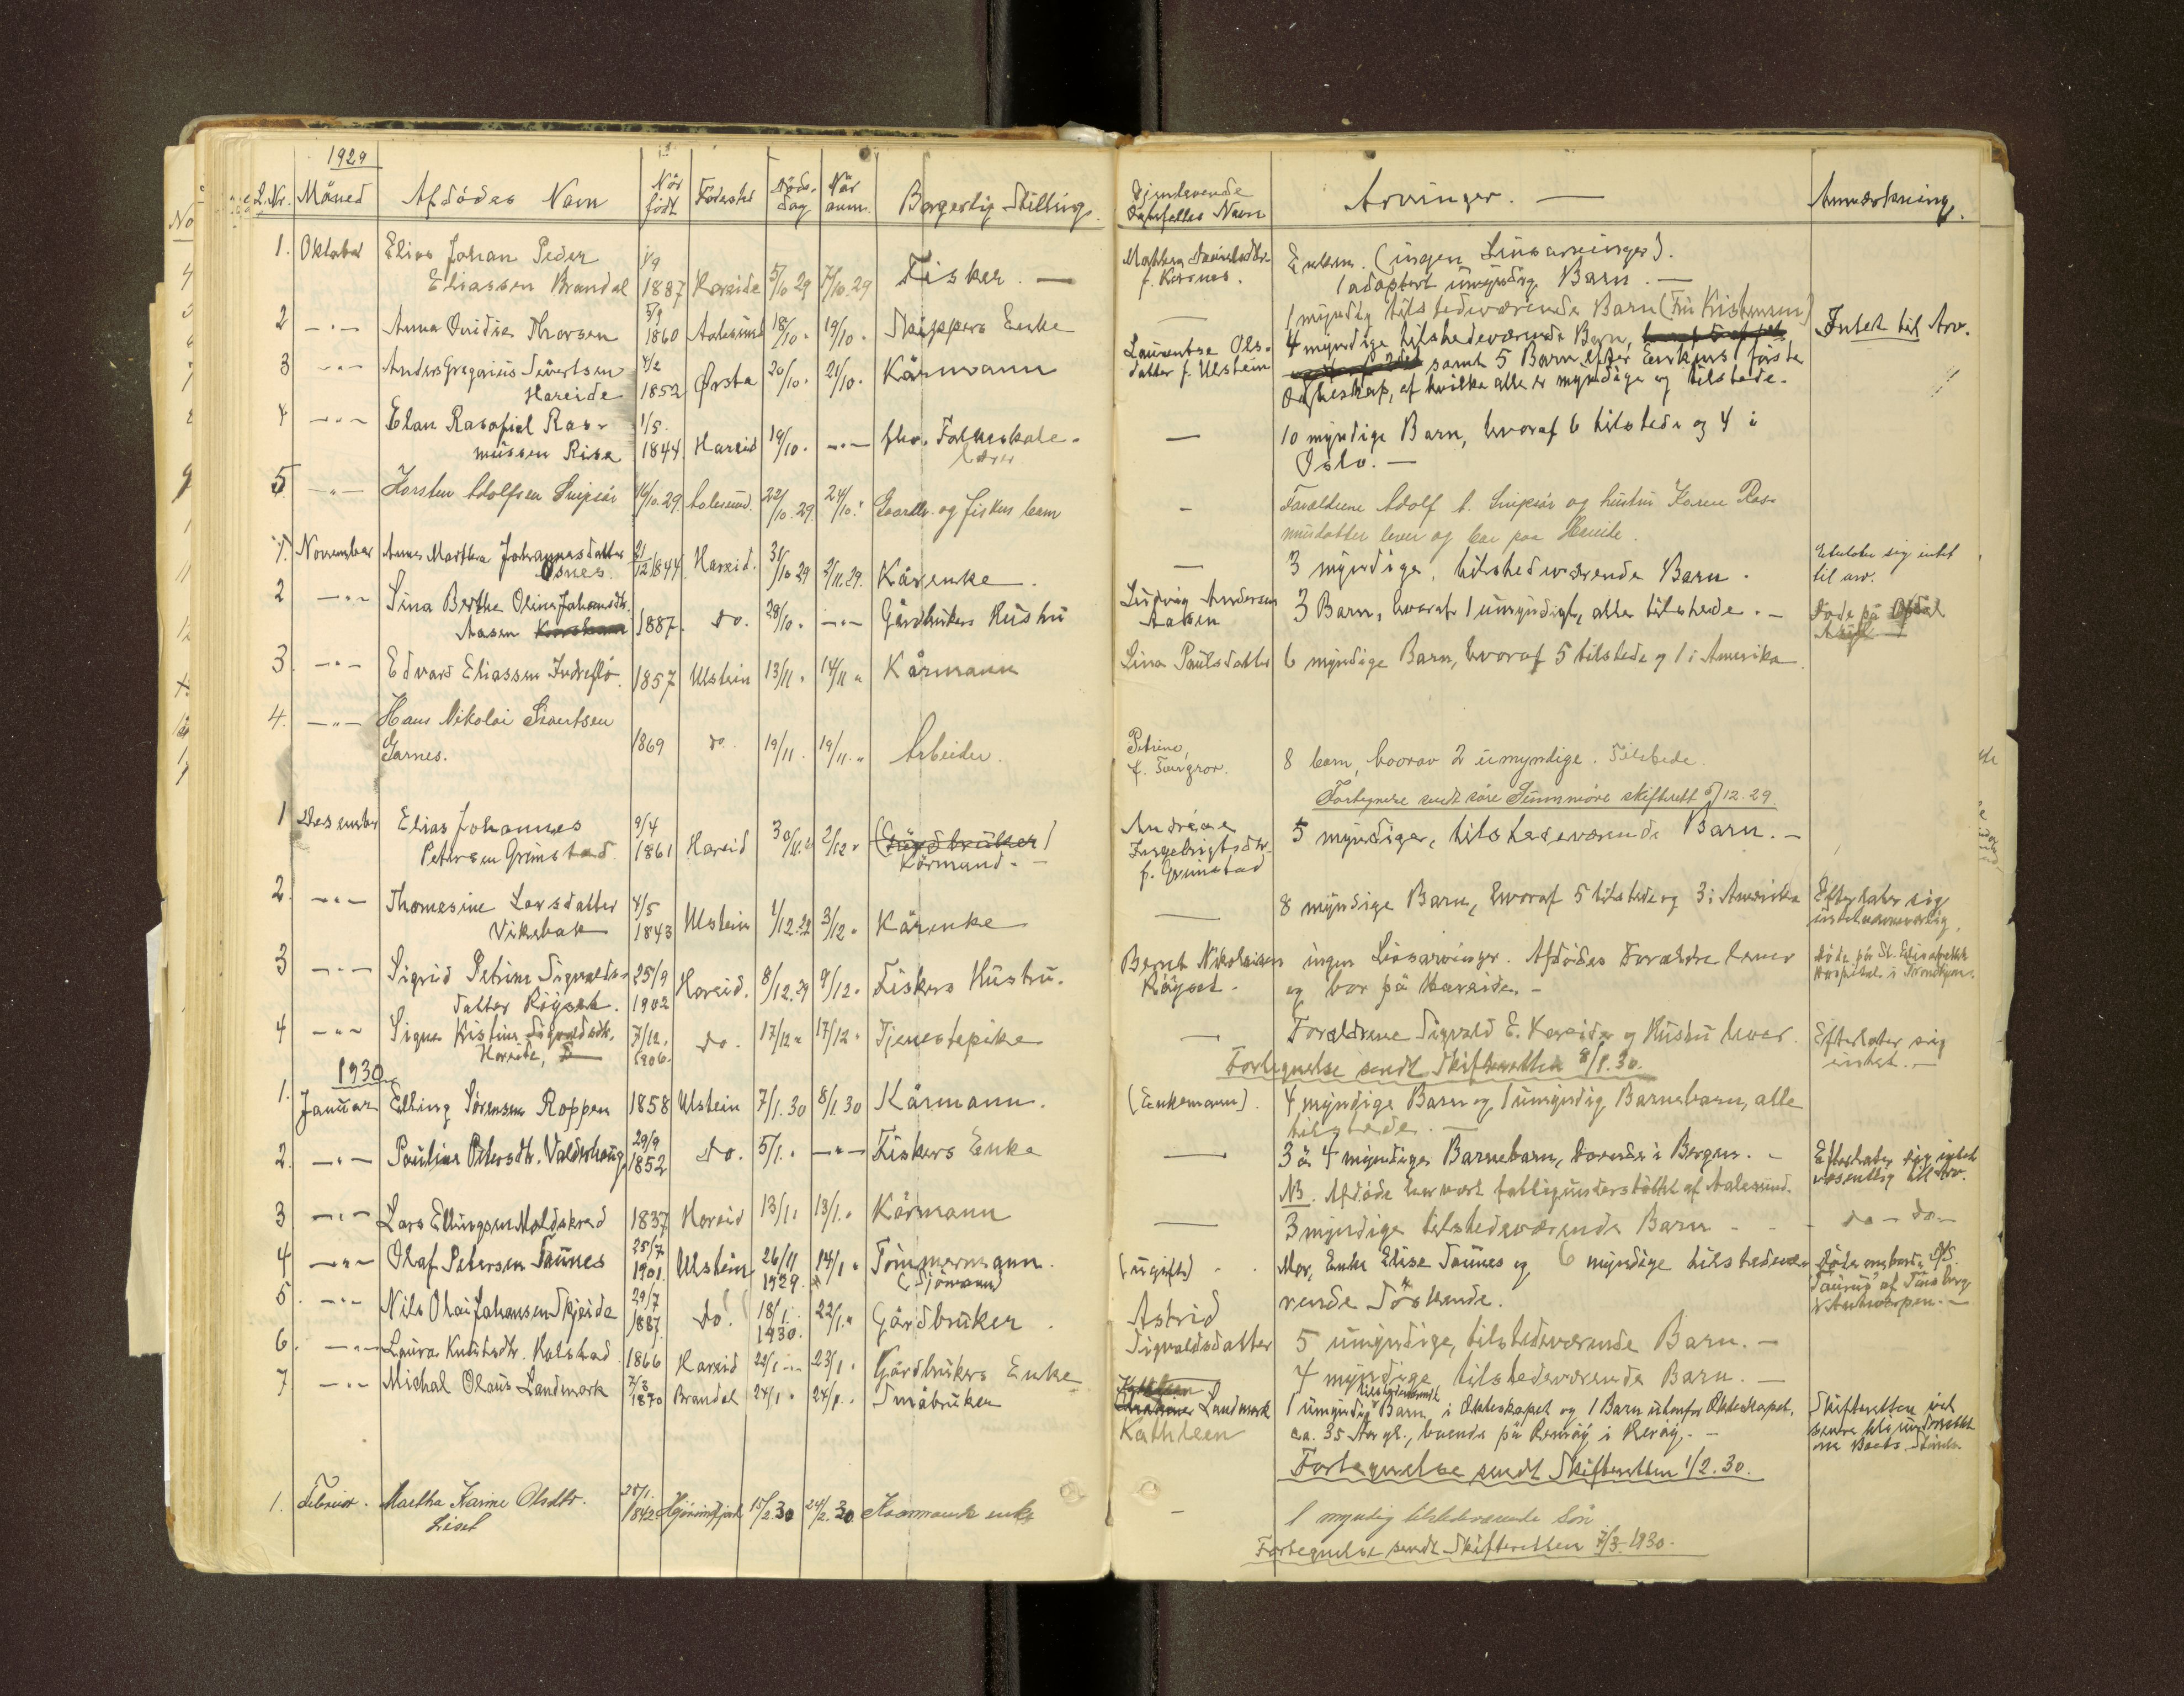 1929
L.Nr. Måned Afdødes Navn Når født Fødested Døds-dag Når anm. Borgerlig Stilling.
1. Oktober Elias Johan Peder 1/9
Eliassen Brandal 1887 Hareide 5/10 29 7/10.29 Fisker. —
2 —"— Anna Ovidia Thorsen 5/9 1860 Aalesund 18/10 " 19/10 " Skippers Enke
3 —"— Anders Gregorius Sivertsen 4/2
Hareide 1852 Ørsta 20/10 " 21/10 " Kårmann
4 —"— Elan Rasofiel Ras- 1/5.
mussen Risa 1844 Hareid 19/10 " —"— fhv. Folkeskole-
lærer
5 —"— Karsten Adolfsen Snipsøir 16/10.29 Aalesund. 22/10.29 24/10." Gaardbr. og fiskers barn
1. November Anne Marthea Johannesdatter
Osnes. 21/12 1844 Hareid. 31/10 29 2/11.29. Kårenke.
2 —"— Sina Berthe Olina Johansdtr.
Aasen 1887. do. 28/10 " —"— Gårdbrukers Hustru
3. —"— Edvard Eliassen Indreflø 1857 Ulstein 13/11 " 14/11 " Kårmann
4. —"— Hans Nikolai Sivertsen
Garnes. 1869 do. 19/11. 19/11." Arbeider.
1 Desember Elias Johannes 9/4
Petersen Grimstad 1861 Hareid 30/11." 2/12 " (Gårdbruker)
Kårmand. —
2. —"— Thomasine Larsdatter 4/5
Viksbak 1843 Ulstein 1/12.29 3/12 " Kårenke
3 —"— Sigrid Petrine Sigvalds- 25/9
datter Røyset. 1902 Hareid. 8/12.29 9/12 " Fiskers Hustru.
4 —"— Signe Kistine Sigvaldsdtr. 7/12.
Hareide, 1906. do. 17/12 " 17/12 " Tjenestepike
1930
1. Januar Elling Sørensen Roppen 1858 Ulstein 7/1.30 8/1.30 Kårmann.
2. —"— Pauline Petersdtr. Valderhaug 29/9 1852 do. 5/1." —"— Fiskers Enke
3. —"— Lars Ellingsen Moldskred 1837 Hareid 13/1." 13/1." Kårmann
4 —"— Olaf Petersen Saunes 25/7 1901. Ulstein 26/11 1929. 14/1 " Tømmermann.
(Sjømann)
5. —"— Nils Olai Johansen Skjeide 29/7 1887. do. 18/1. 1930. 22/1." Gårdbruker.
6. —"— Laura Knutsdtr. Kalstad 1866 Hareid 22/1 —"— 23/1 " Gårdbrukers Enke
7 —"— Michal Olaus Landmark 7/3 1870 Brandal 24/1 " 24/1." Småbruker
1. Februar. Martha Karine Olsdtr. 25/1.
Liset 1842 Hjørundfjord 15/2.30 24/2.30 Kaarmands enke
Gjenlevende Ægtefelles Navn Arvinger. — Anmærkning.
f. Karsnes. Enken. (ingen Livsarvinger).
1 adoptert umyndig Barn. —
— 1 myndig tilstedeværende Barn (Fru Kristensen) Intet til Arv.
Laurentse Ols- 4 myndige tilstedeværende Barn,
datter f. Ulstein samt 5 Barn efter Enkens første
Ægteskap, af hvilke alle er myndige og tilstede.
— 10 myndige Barn, hvoraf 6 tilstede og 4 i
Oslo. —
- Forældrene Adolf A. Snipsøir og hustru Karen Ras-
musdatter lever og bor paa Hareide.
— 3 myndige, tilstedeværende Barn. Efterlater sig intet
til arv.
Ludvig Andersen 3 Barn, hvoraf 1 umyndigt, alle tilstede. — Døde på Opdøl
Aasen Asyl
Lina Paulsdatter 6 myndige Barn, hvoraf 5 tilstede og 1 i Amerika.
Petrine,
f. Tungror. 8 barn, hvorav 2 umyndige. Tilstede.
Fortegnelse sendt søre Sunnmøre skifterett 5/12.29.
Andreae 5 myndige, tilstedeværende Barn. —
Ingebrigtsdtr.
f. Grimstad
— 8 myndige Barn, hvoraf 5 tilstede og 3 i Amerika Efterlater sig
intet nævneverdig.
Bernt Nikolaisen ingen Livsarvinger. Afdødes Forældre lever Døde på St. Elisabeths
Røyset. og bor på Hareide. — Hospital i Trondhjem.
— Forældrene Sigvald E. Hareide og Hustru lever. Efterlater sig
Fortegnelse sendt Skifteretten 8/1.30. intet. —
(Enkemann). 4 myndige Barn og 1 umyndig Barnebarn, alle
tilstede. —
— 3 à 4 myndige Barnebarn, boende i Bergen. — Efterlater sig intet
NB. Afdøde har vært fattigunderstøttet af Aalesund. væsentlig til Arv.
— 3 myndige tilstedeværende Barn - - - do — do —
(ugift) Mor, Enke Elise Saunes og 6 myndige tilstedevæ- Døde ombord D/S
rende Søskende. "Taurus" af Tønsberg
Astrid i Antwerpen. —
Sigvaldsdatter 5 umyndige, tilstedeværende Barn. —
— 4 myndige tilstedeværende Barn. —
Landmark 1 umyndig tilstedeværende Barn i Ekteskapet og 1 Barn utenfor Ekteskapet, Skifteretten vil
Kathleen ca. 35 År gl., boende på Remøy i Herøy. — senere bli underrettet
om Boets Stilling.
Fortegnelse sendt Skifteretten 1/2.30.
- 1 myndig tilstedeværende Søn.
Fortegnelse sendt Skifteretten 7/3.1930.